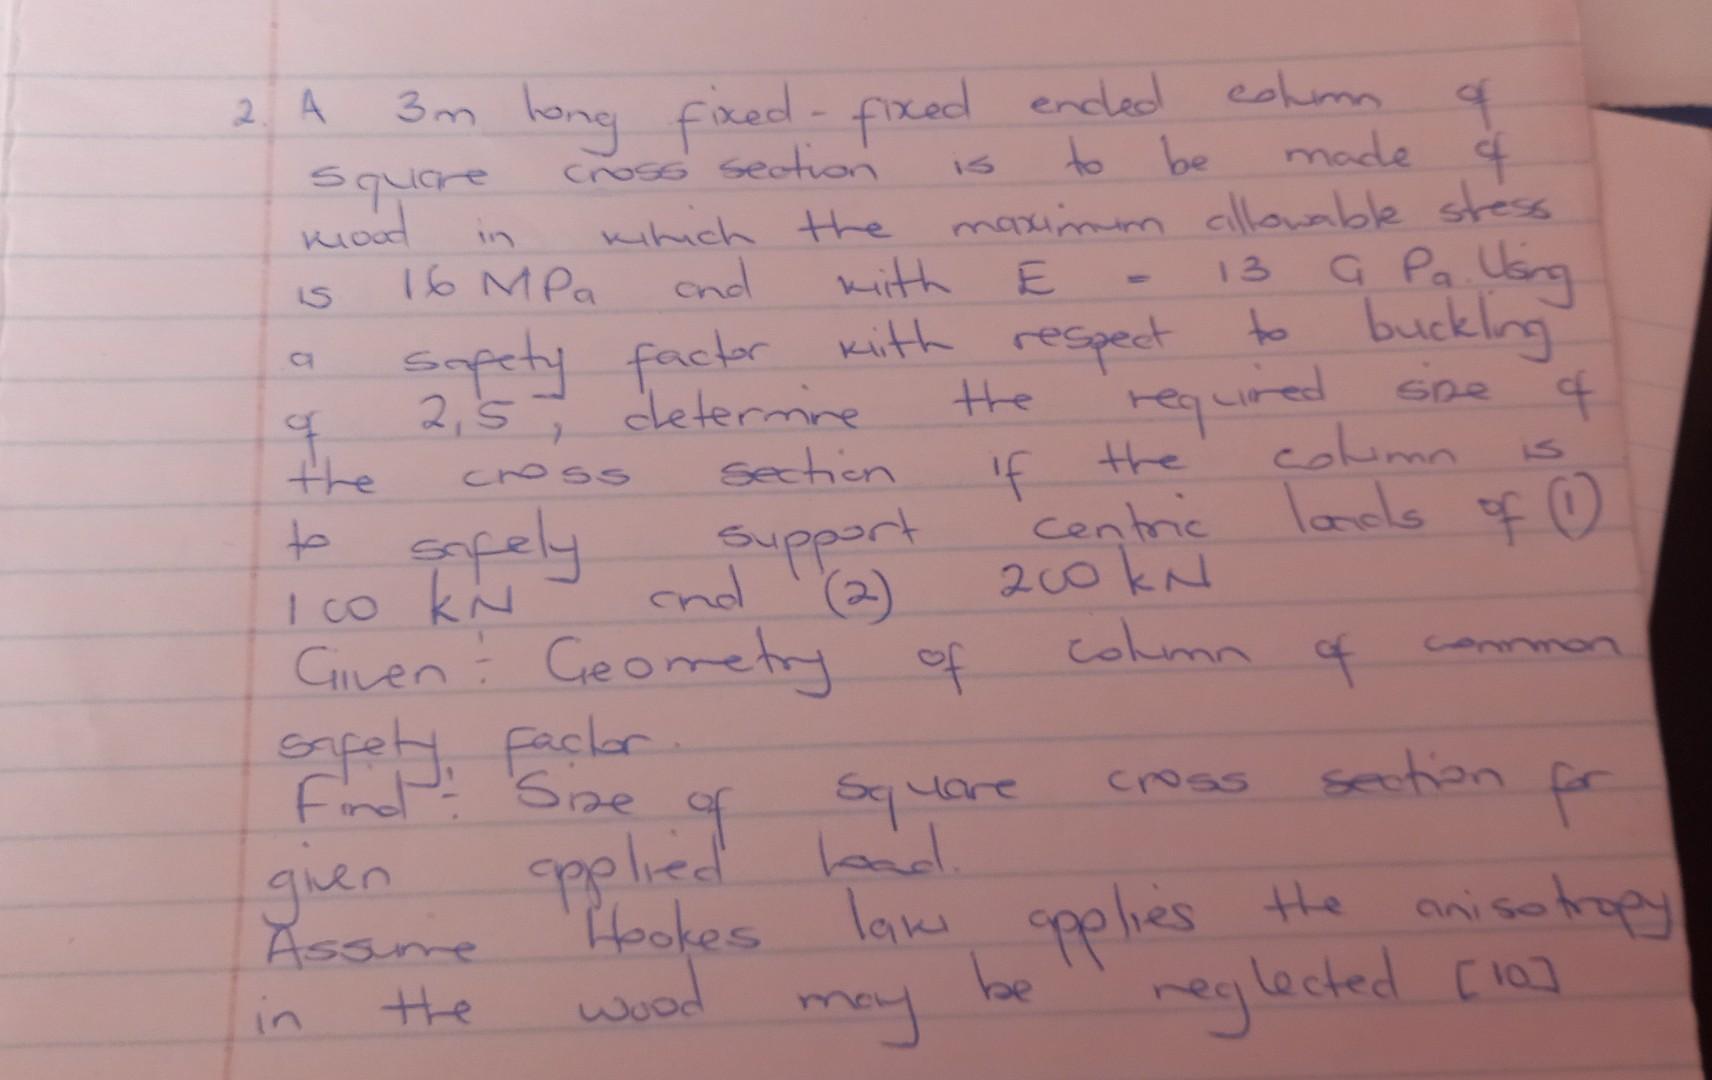 2. A 3m long fixed-fixed ended column of
square cross section is to be made of
wood in which the maximum allowable stress
is 16 MPa and with E = 13 G Pa. Using
a safety factor with respect to buckling
of 2,5, determine the required size of
the cross section if the column is
to safely support centric loads of (1)
100 kN and (2) 200 kN
Given: Geometry of column of common
safety factor.
Find: Size of square cross section for
given applied load.
Assume Hookes law applies the anisotropy
in the wood may be neglected [10]